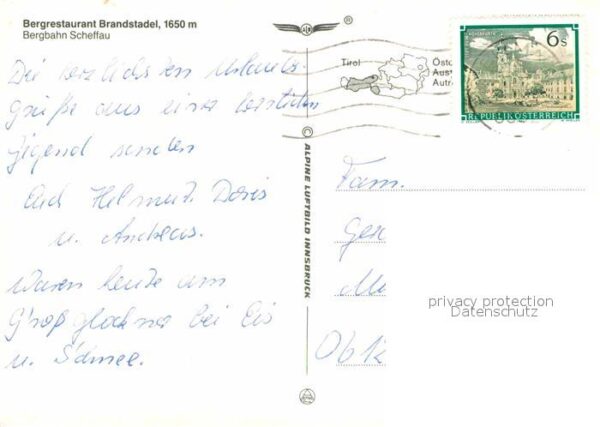 Bergrestaurant Brandstadel, 1650 m
Bergbahn Scheffau
Die herzlichsten Urlaubs-
grüße aus einer herrlichen
Gegend senden
Euch Helmut, Doris
u. Andreas.
Waren heute am
Großglockner bei Eis
u. Schnee.
© ALPINE LUFTBILD INNSBRUCK
Tirol
Öst
Aus
Autr
6s
REPUBLIK ÖSTERREICH
Fam.
Ges
M
Obk
privacy protection
Datenschutz